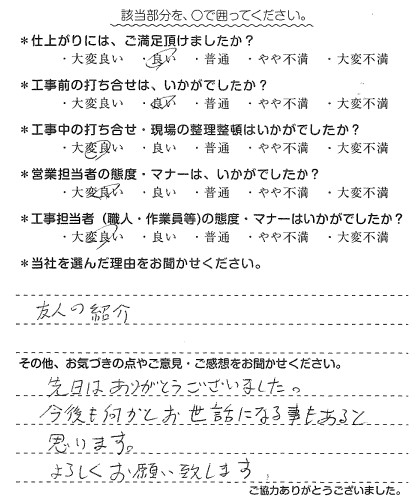 該当部分を、○で囲ってください。
＊仕上がりには、ご満足頂けましたか？
・大変良い ・良い ・普通 ・やや不満 ・大変不満
＊工事前の打ち合せは、いかがでしたか？
・大変良い ・良い ・普通 ・やや不満 ・大変不満
＊工事中の打ち合せ・現場の整理整頓はいかがでしたか？
・大変良い ・良い ・普通 ・やや不満 ・大変不満
＊営業担当者の態度・マナーは、いかがでしたか？
・大変良い ・良い ・普通 ・やや不満 ・大変不満
＊工事担当者（職人・作業員等)の態度・マナーはいかがでしたか？
・大変良い ・良い ・普通 ・やや不満 ・大変不満
＊当社を選んだ理由をお聞かせください。
友人の紹介
その他、お気づきの点やご意見・ご感想をお聞かせください。
先日はありがとうございました。
今後も何かとお世話になる事もあると
思ります。
よろしくお願い致します
ご協力ありがとうございました。